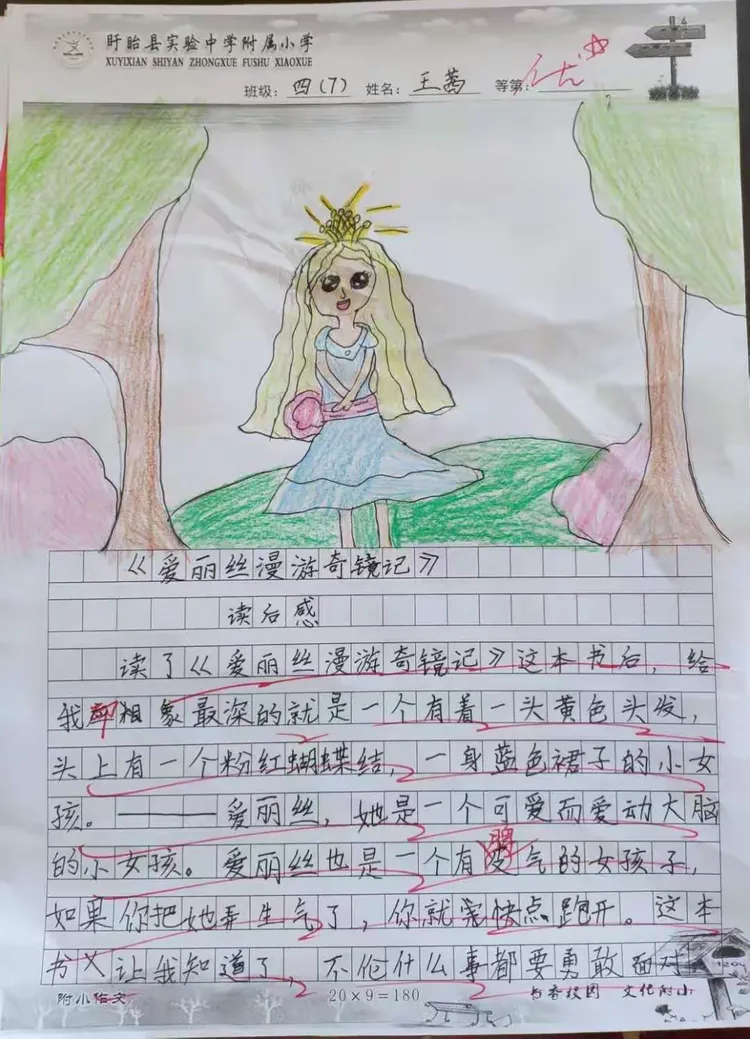 盱眙县实验中学附属小学
XUYIXIAN SHIYAN ZHONGXUE FUSHU XIAOXUE
班级：四(7) 姓名：王茜 等第：优
《爱丽丝漫游奇镜记》
读后感
读了《爱丽丝漫游奇镜记》这本书后，给
我印相象最深的就是一个有着一头黄色头发，
头上有一个粉红蝴蝶结，一身蓝色裙子的小女
孩。———爱丽丝，她是一个可爱而爱动大脑
的小女孩。爱丽丝也是一个有脾气的女孩子，
如果你把她弄生气了，你就需快点跑开。这本
书又让我知道了，不伦什么事都要勇敢面对
附小作文 20×9=180 书香校园 文化附小